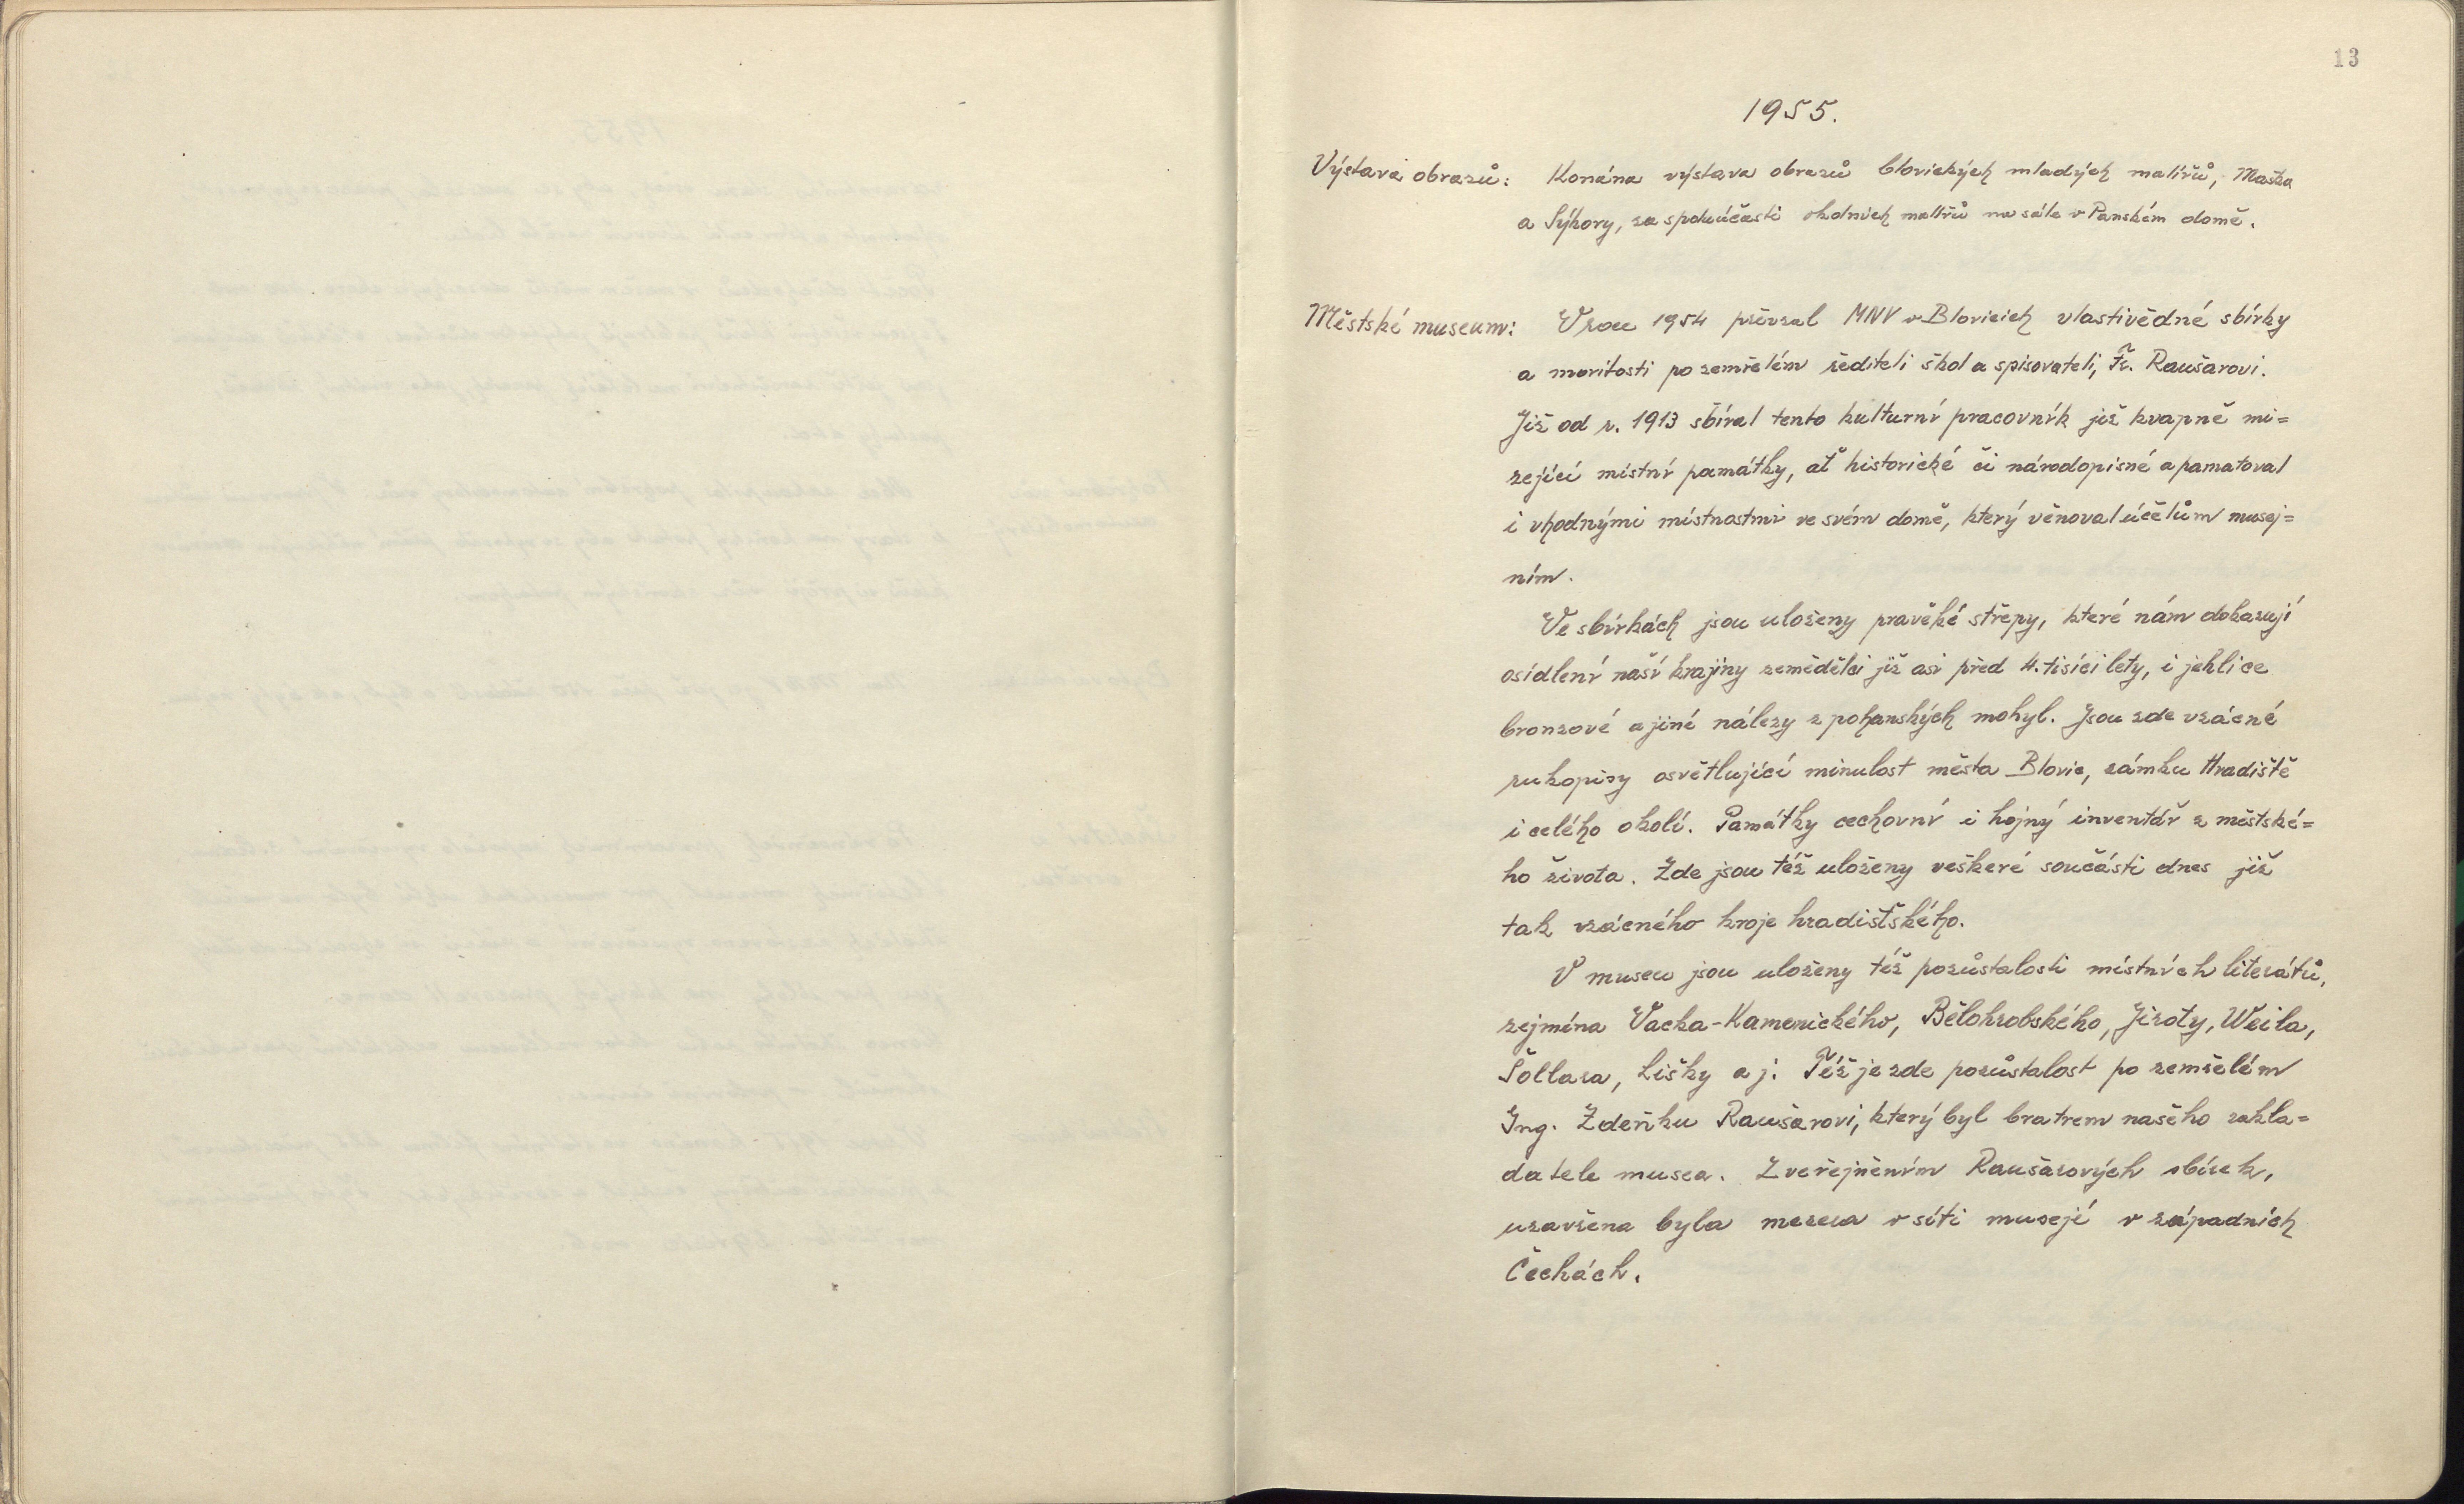 13
1955.
Výstava obrazů: Konána výstava obrazů blovických mladých malířů, Maška
a Sýkory, za spoluúčasti okolních malířů na sále v Panském domě.
Městské museum: V roce 1954 převzal MNV v Blovicích vlastivědné sbírky
a moritosti po zemřelém řediteli škol a spisovateli, Fr. Raušarovi.
Již od r. 1913 sbíral tento kulturní pracovník již kvapně mi=
zející místní památky, ať historické či národopisné a pamatoval
i vhodnými místnostmi ve svém domě, který věnoval účelům musej=
ním.
Ve sbírkách jsou uloženy pravěké střepy, které nám dokazují
osídlení naší krajiny zemědělci již asi před 4. tisíci lety, i jehlice
bronzové a jiné nálezy z pohanských mohyl. Jsou zde vzácné
rukopisy osvětlující minulost města Blovic, zámku Hradiště
i celého okolí. Památky cechovní i hojný inventář z městské=
ho života. Zde jsou též uloženy veškeré součásti dnes již
tak vzácného kroje hradišťského.
V museu jsou uloženy též pozůstalosti místních literátů,
zejména Vacka-Kamenického, Bělohrobského, Jiroty, Weila,
Šollara, Lišky a j. Též je zde pozůstalost po zemřelém
Ing. Zdeňku Raušarovi, který byl bratrem našeho zakla=
datele musea. Zveřejněním Raušarových sbírek,
uzavřena byla mezera v síti musejí v západních
Čechách.